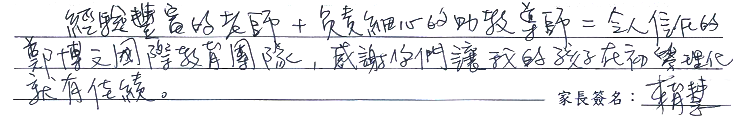 經驗豐富的老師＋負責細心的助教導師＝令人信服的
鄭博文國際教育團隊，感謝你們讓我的孩子在初學理化
就有佳績。
家長簽名：賴慧